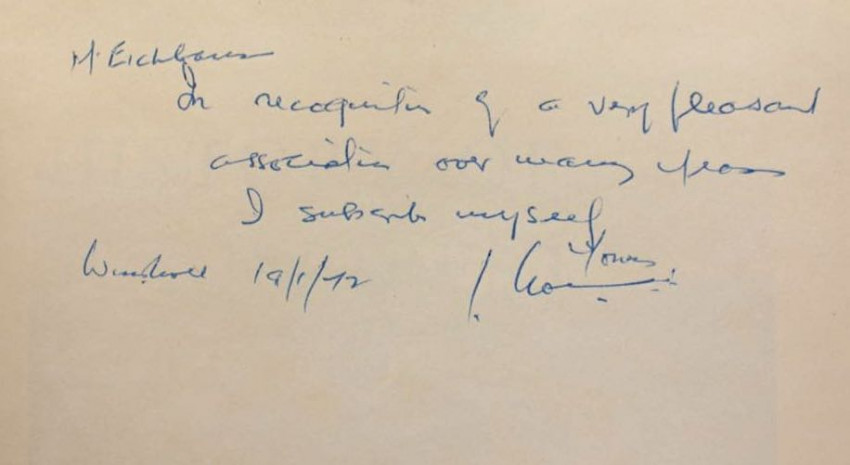 M. Eichbaum
In recognition of a very pleasant
association over many years
I subscribe myself
Yours
19/1/72 J.